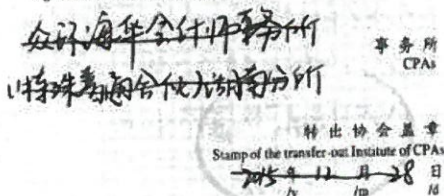 众环海华会计师事务所
事务所
CPAs
(特殊普通合伙)湖南分所
转出协会盖章
Stamp of the transfer-out Institute of CPAs
2015年12月28日
/y /m /d